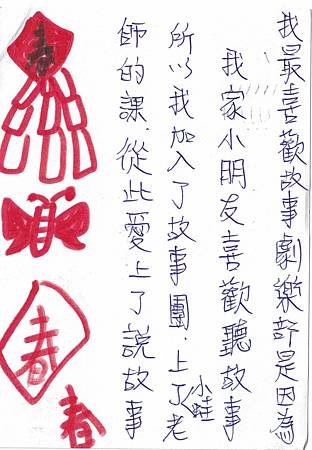 我最喜歡故事劇樂部是因為
我家小朋友喜歡聽故事
所以我加入了故事團.上了小蛙老
師的課.從此愛上了說故事
春
春
春